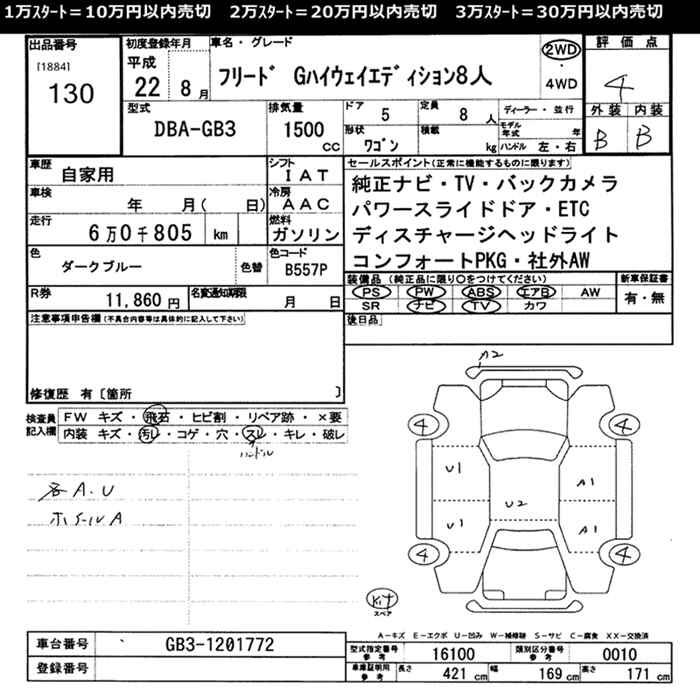 1万スタート＝10万円以内売切　2万スタート＝20万円以内売切　3万スタート＝30万円以内売切
出品番号
[1884]
130
初度登録年月
平成
22 8月
車名・グレード
フリード Gハイウェイエディション8人
2WD
・
4WD
評価点
4
外装 内装
B B
型式
DBA-GB3
排気量
1500
CC
ドア
5
定員
8人
形状
ワゴン
積載
kg
ディーラー・並行
モデル年式 年
ハンドル 左・右
車歴
自家用
シフト
IAT
車検
年 月( 日)
冷房
AAC
走行
6万0千805 km
燃料
ガソリン
色
ダークブルー
色替
色コード
B557P
R券
11,860円
名変通知期限
月 日
セールスポイント(正常に機能するものに限ります)
純正ナビ・TV・バックカメラ
パワースライドドア・ETC
ディスチャージヘッドライト
コンフォートPKG・社外AW
装備品 (純正品に限り○をつけてください)
PS PW ABS エアB AW
SR ナビ TV カワ
新車保証書
有・無
後日品
注意事項申告欄(不具合内容等は具体的に記入して下さい)
修復歴 有〔箇所 〕
検査員記入欄
FW キズ・飛石・ヒビ割・リペア跡・×要
内装 キズ・汚レ・コゲ・穴・スレ・キレ・破レ
ハンドル
各A.U
ホイールA
A2
4 4
U1 A1
U2
U1 A1
4 4
Kit
スペア
A－キズ E－エクボ U－凹み W－補修跡 S－サビ C－腐食 XX－交換済
車台番号
GB3-1201772
登録番号
型式指定番号
参考
16100
類別区分番号
参考
0010
車庫証明用
参考
長さ 421 cm 幅 169 cm 高さ 171 cm